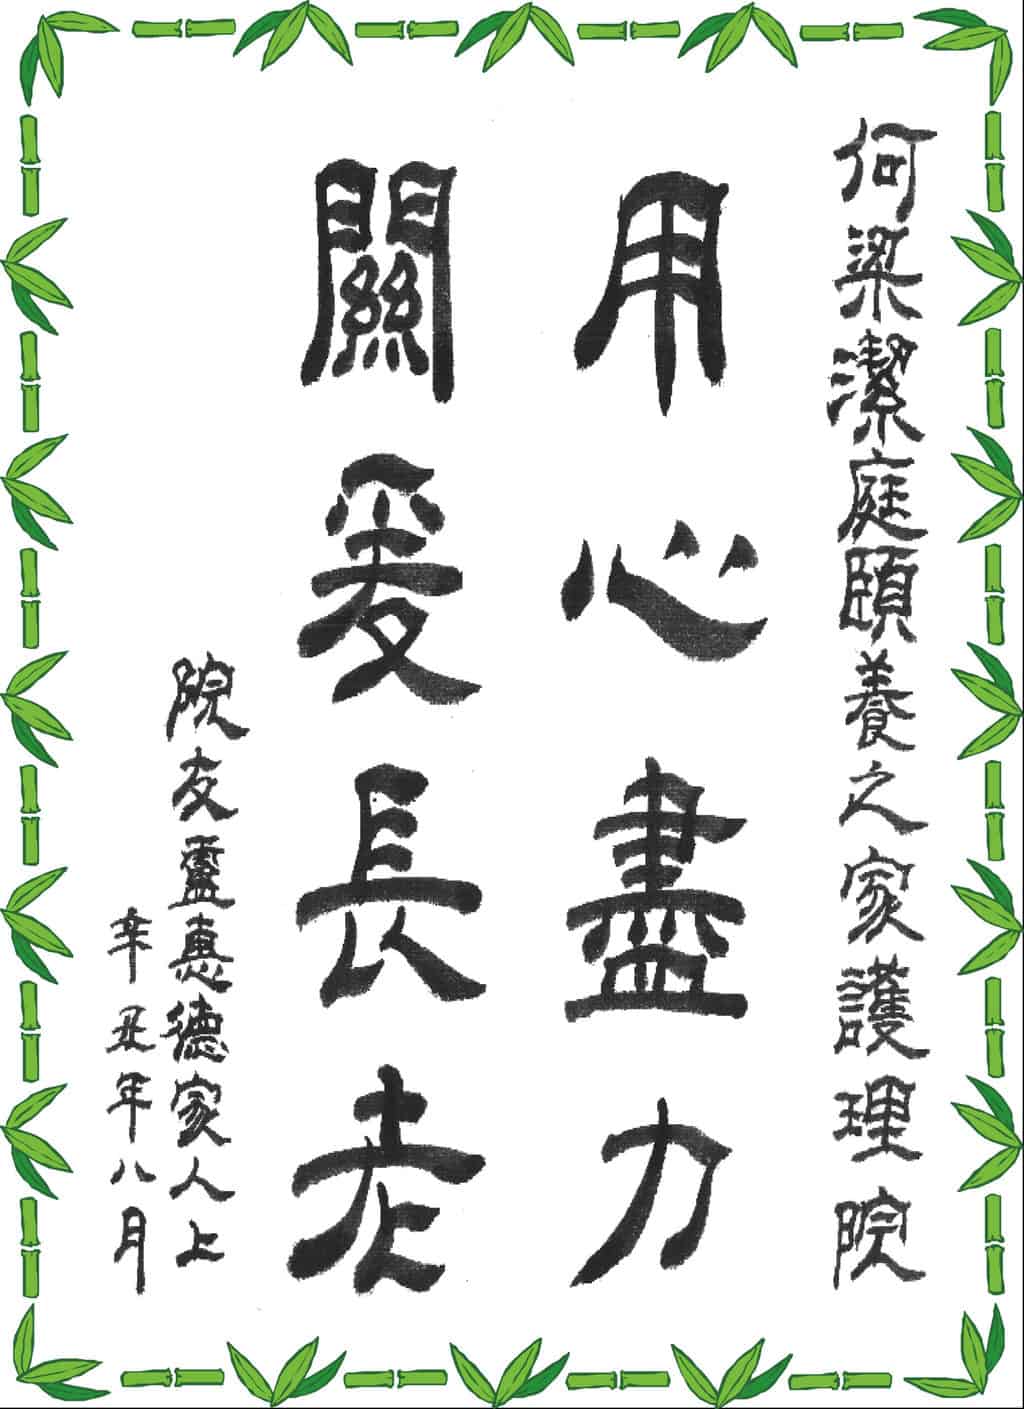 何梁潔庭頤養之家護理院
用心盡力
關爱長者
院友盧惠德家人上
辛丑年八月